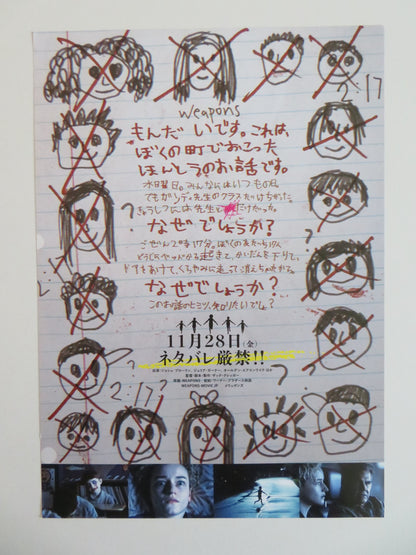 weapons
もんだいです。これは、
ぼくの町でおこった
ほんとうのお話です。
水曜日。みんなにはいつもの日。
でもガンディ先生のクラスだけちがった。
きょうしつには先生と だけだった。
なぜでしょうか？
ごぜん2時17分。ぼくの友だち17人
どうじにベッドから起きて、かいだんを下りて。
ドアをあけて、くらやみに走って消えちゃたから。
なぜでしょうか？
このお話のヒミツ、知りたいでしょ？
2:17
2:17?
11月28日(金)
ネタバレ厳禁!!
出演：ジョシュ・ブローリン、ジュリア・ガーナー、オールデン・エアエンライク ほか
監督・脚本・製作：ザック・クレッガー
原題：WEAPONS 配給：ワーナー・ブラザース映画
WEAPONS-MOVIE.JP #ウェポンズ